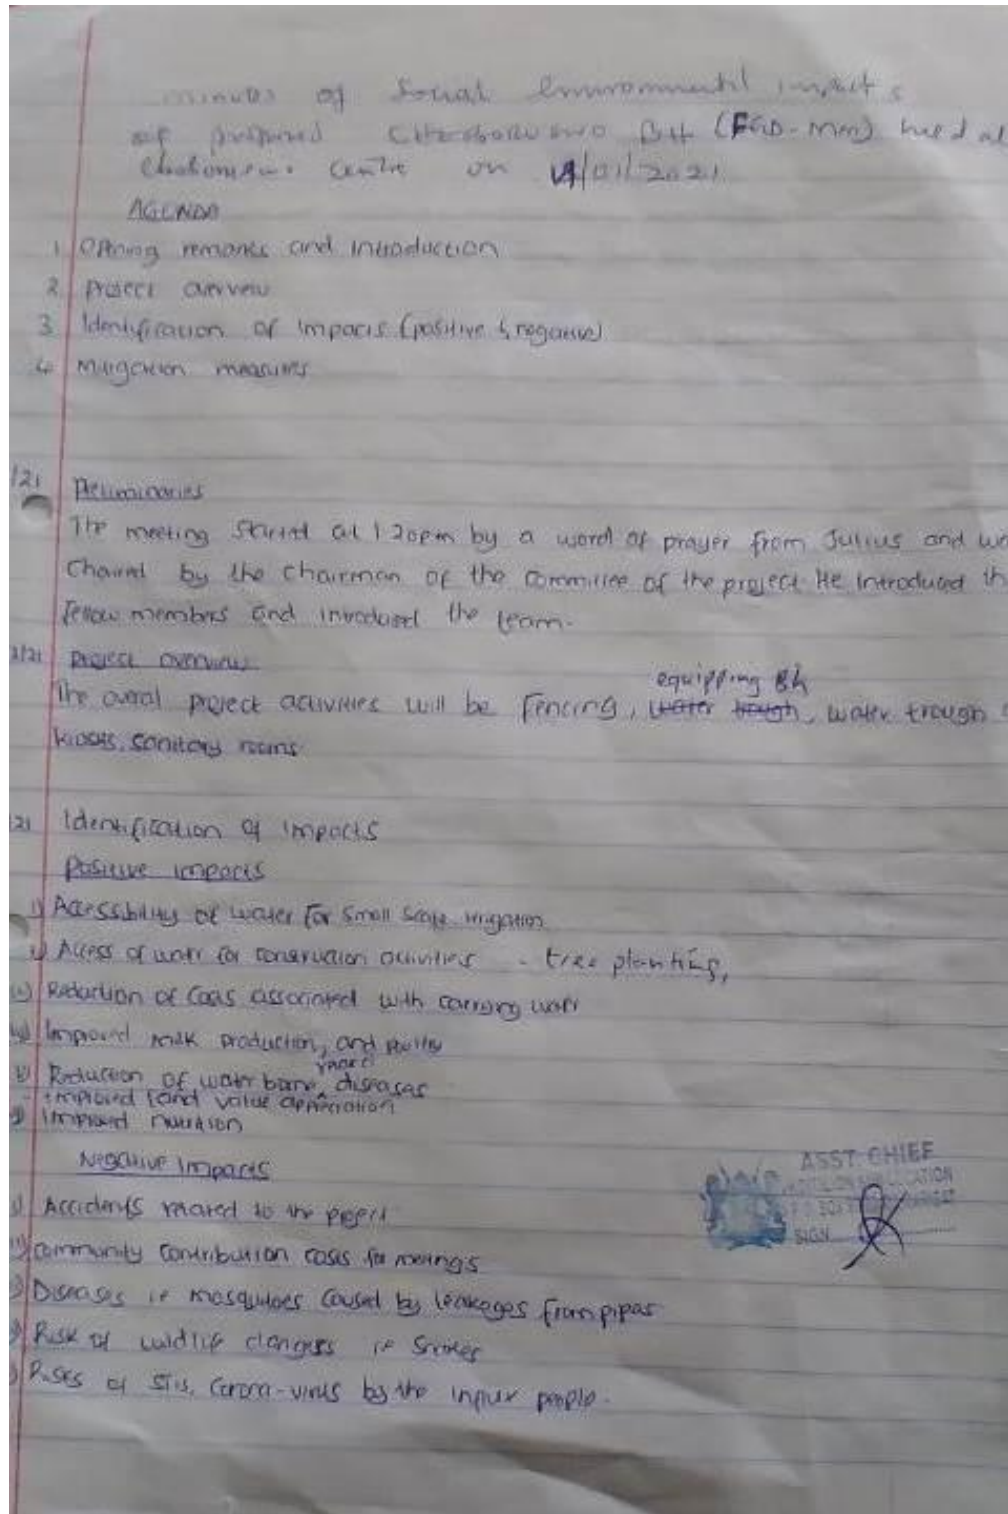 minutes of Social Environmental impacts
of proposed BH (FGD-Men) held at
Centre on /01/2021
AGENDA
1. Opening remarks and introduction
2. Project overview
3. Identification of impacts (positive & negative)
4. Mitigation measures
/21 Preliminaries
The meeting started at 1.20pm by a word of prayer from Julius and wa
Chaired by the Chairman of the committee of the project. He introduced th
fellow members and introduced the team.
2/21 Project overview
equipping Bh
The overal project activities will be Fencing, water trough, water trough
kiosks, sanitary rooms
/21 Identification of impacts
Positive impacts
i) Accessibility of water for small scale irrigation
Access of water for conservation activities - tree planting,
Reduction of costs associated with carrying water
iv) Improved milk production, and poultry
v) Reduction of water borne related diseases
- improved land value appreciation
Improved nutrition
Negative Impacts
i) Accidents related to the project
ii) community contribution costs for meetings
Diseases ie mosquitoes caused by leakeges from pipes
Risk of wildlife dangers ie snakes
Risks of STIs, Corona-virus by the influx people.
ASST. CHIEF
LOCATION
SIGN